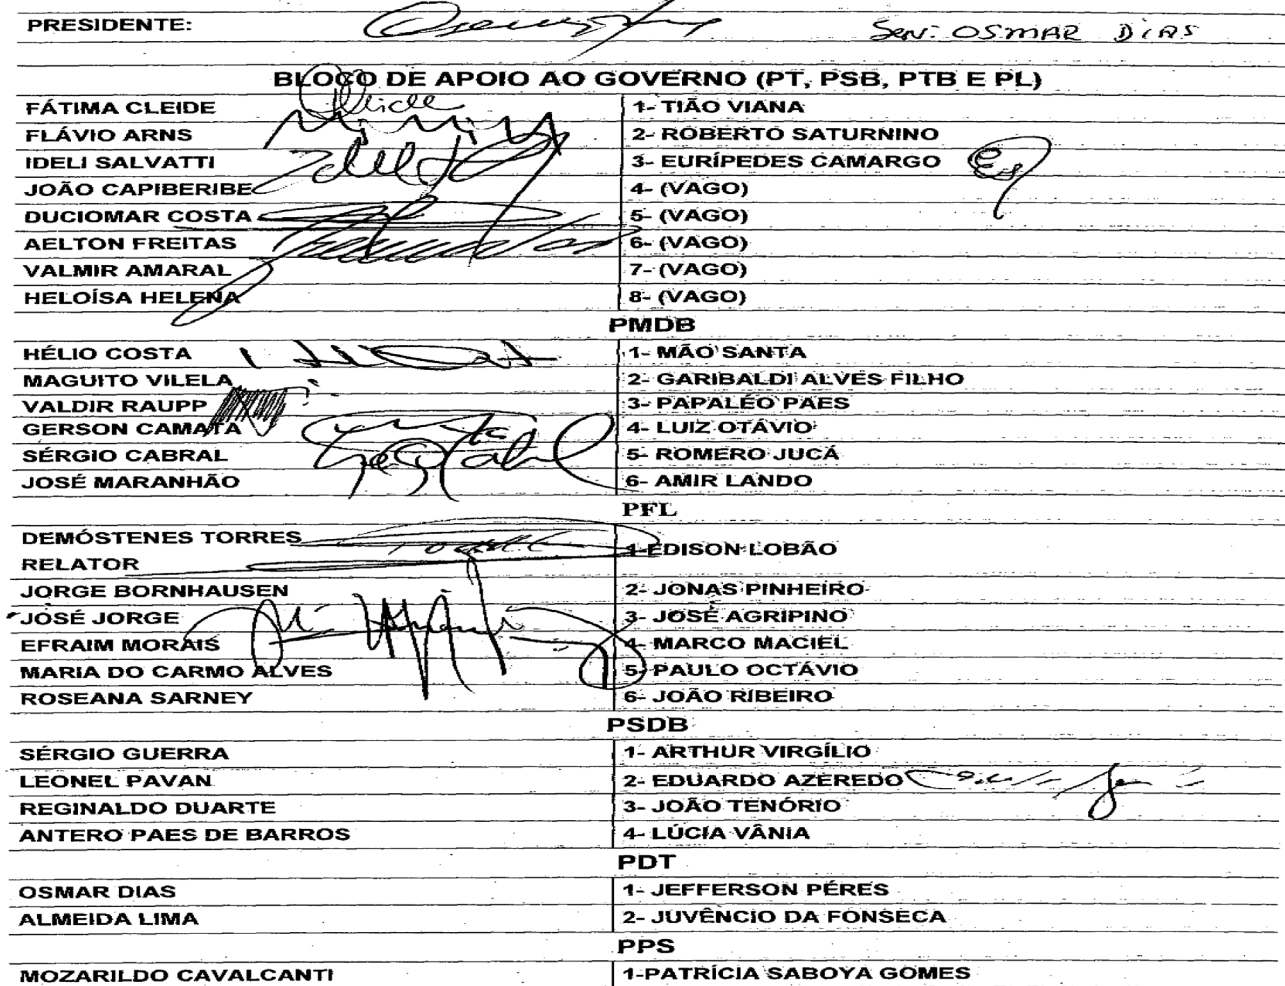 PRESIDENTE: SEN. OSMAR DIAS
BLOCO DE APOIO AO GOVERNO (PT, PSB, PTB E PL)
FÁTIMA CLEIDE 1- TIÃO VIANA
FLÁVIO ARNS 2- ROBERTO SATURNINO
IDELI SALVATTI 3- EURÍPEDES CAMARGO
JOÃO CAPIBERIBE 4- (VAGO)
DUCIOMAR COSTA 5- (VAGO)
AELTON FREITAS 6- (VAGO)
VALMIR AMARAL 7- (VAGO)
HELOÍSA HELENA 8- (VAGO)
PMDB
HÉLIO COSTA 1- MÃO SANTA
MAGUITO VILELA 2- GARIBALDI ALVES FILHO
VALDIR RAUPP 3- PAPALÉO PAES
GERSON CAMATA 4- LUIZ OTÁVIO
SÉRGIO CABRAL 5- ROMERO JUCÁ
JOSÉ MARANHÃO 6- AMIR LANDO
PFL
DEMÓSTENES TORRES 1-EDISON LOBÃO
RELATOR
JORGE BORNHAUSEN 2- JONAS PINHEIRO
JOSÉ JORGE 3- JOSÉ AGRIPINO
EFRAIM MORAIS 4- MARCO MACIEL
MARIA DO CARMO ALVES 5- PAULO OCTÁVIO
ROSEANA SARNEY 6- JOÃO RIBEIRO
PSDB
SÉRGIO GUERRA 1- ARTHUR VIRGÍLIO
LEONEL PAVAN 2- EDUARDO AZEREDO
REGINALDO DUARTE 3- JOÃO TENÓRIO
ANTERO PAES DE BARROS 4- LÚCIA VÂNIA
PDT
OSMAR DIAS 1- JEFFERSON PÉRES
ALMEIDA LIMA 2- JUVÊNCIO DA FONSECA
PPS
MOZARILDO CAVALCANTI 1-PATRÍCIA SABOYA GOMES